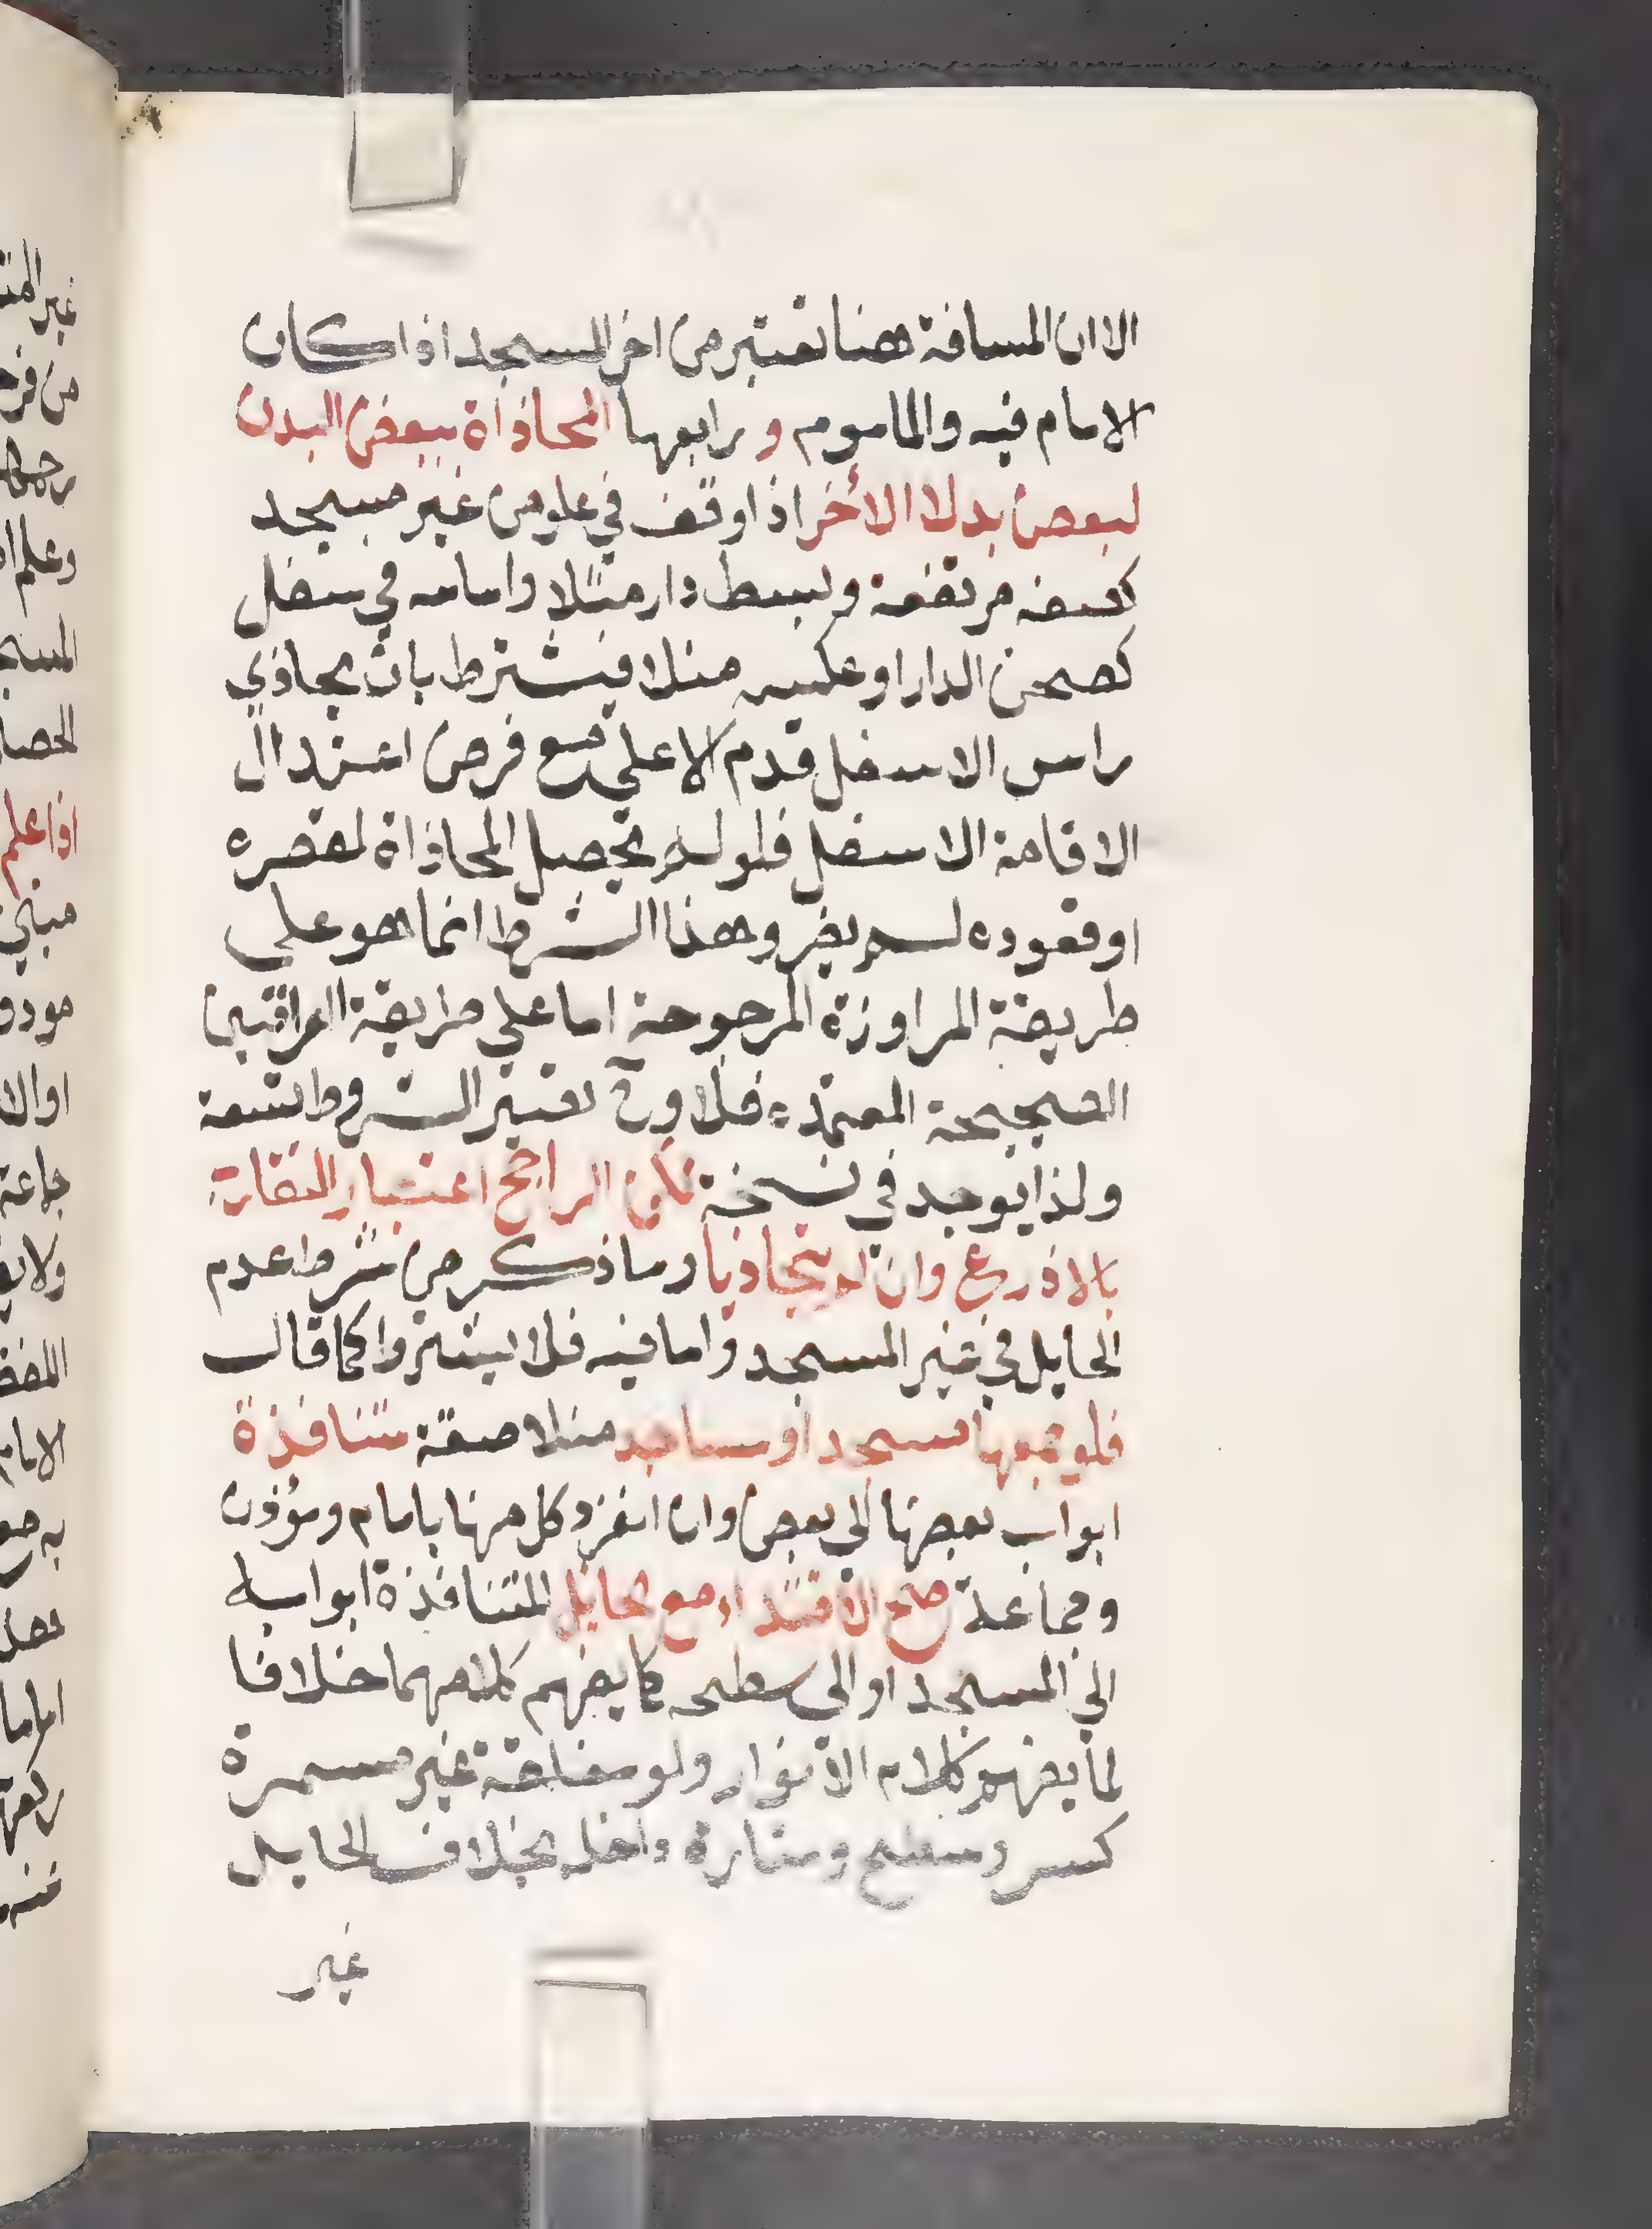 الا ان المسافة هنا تعتبر من اخر المسجد اذا كان
الامام فيه والماموم و رابعها المحاذاة ببعض البدن
لبعض بدلا الاخر اذا وقف في علو من غير مسجد
كصفه مرتفعة ولبسط دار مثلا وامامه في سفل
كصحن الدار او عكسه مثلا فيشترط بان يحاذي
راس الاسفل قدم الاعلى مع فرض اعتدال
الاقامة الاسفل فلو لم تحصل المحاذاة لقصره
او قعوده لم يضر وهذا الشرط انما هو على
طريقة المراوزة المرجوحة اما على طريقة العراقيين
الصحيحة المعتمدة فلا ون تعتبر الشروط تسعة
ولذا يوجد في نسخة لكن الراجح اعتبار التقارب
بالاذرع وان لم يتحاذيا وما ذكر من شرط عدم
الحايل في غير المسجد واما فيه فلا يشترط كما قال
فلو جمعها مسجد او مساجد متلاصقة متنافذة
ابواب بعضها الى بعض وان انفرد كل منها بامام ومؤذن
وجماعة صح الاقتداء مع الحايل المتنافذة ابوابه
الى المسجد او الى سطحه كما يفهم كلامهما خلافا
لما يفهم كلام الانوار ولو مغلقة غير مسمرة
كبير وسطح ومنارة داخله بخلاف الحايل
غير